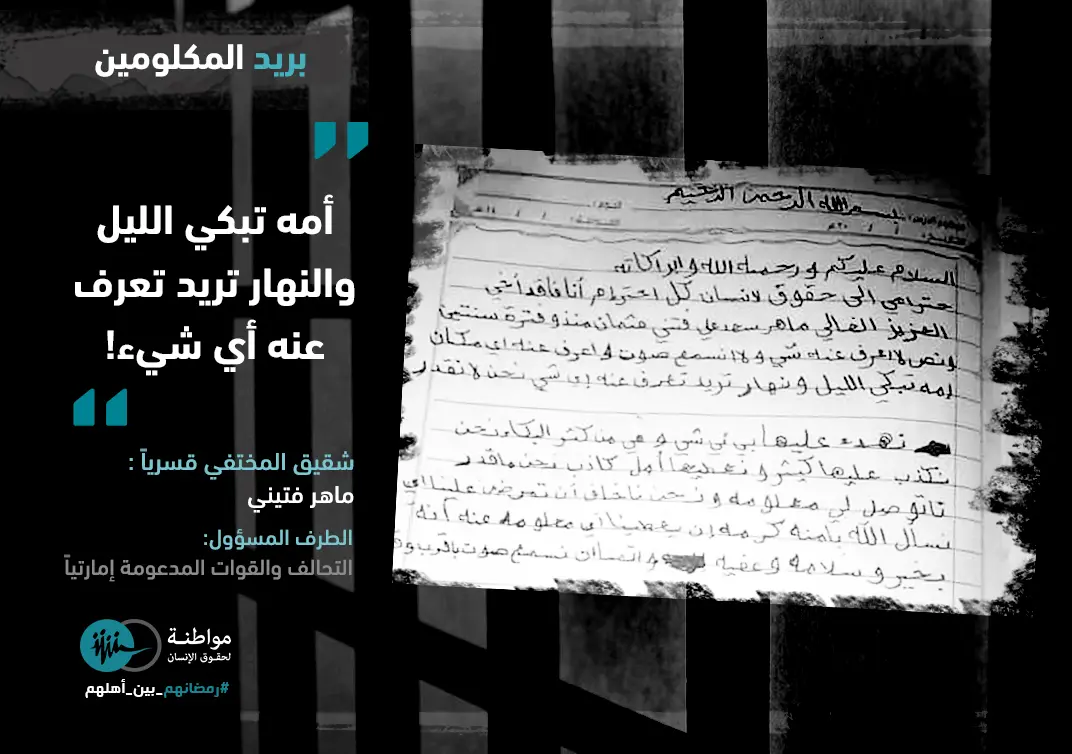 بريد المكلومين
أمه تبكي الليل
والنهار تريد تعرف
عنه أي شيء!
شقيق المختفي قسرياً :
ماهر فتيني
الطرف المسؤول:
التحالف والقوات المدعومة إماراتياً
مواطنـة
لحقـوق الإنسان
#رمضانهم_بين_أهلهم
بسم الله الرحمن الرحيم
السلام عليكم ورحمة الله وابراكاته
حترامي الى حقوق لانسان كل احترام أنا فاقد أخي
العزيز الغالي ماهر سعد علي فتني عثمان منذو فترة سنتين
ونص لا اعرف عنه شي ولا انسمع صوت و اعرف عنه اي مكان
امه تبكي الليل و نهار تريد تعرف عنه اي شي نحن لا نقدر
نهدء عليها بي اي شي و هي من كثر البكاء نحن
نكذب عليها كيثر و نعيديها أمل كاذب نحن ماقدر
ناتوصل لي معلومه و نحن ناخاف أن تمرض علينا اي
نسال الله يامنه كرمه إن يعطينا اي معلومه عنه أنه
بخير و سلامه و عفيه و اتمسان نسمع صوت باقرب